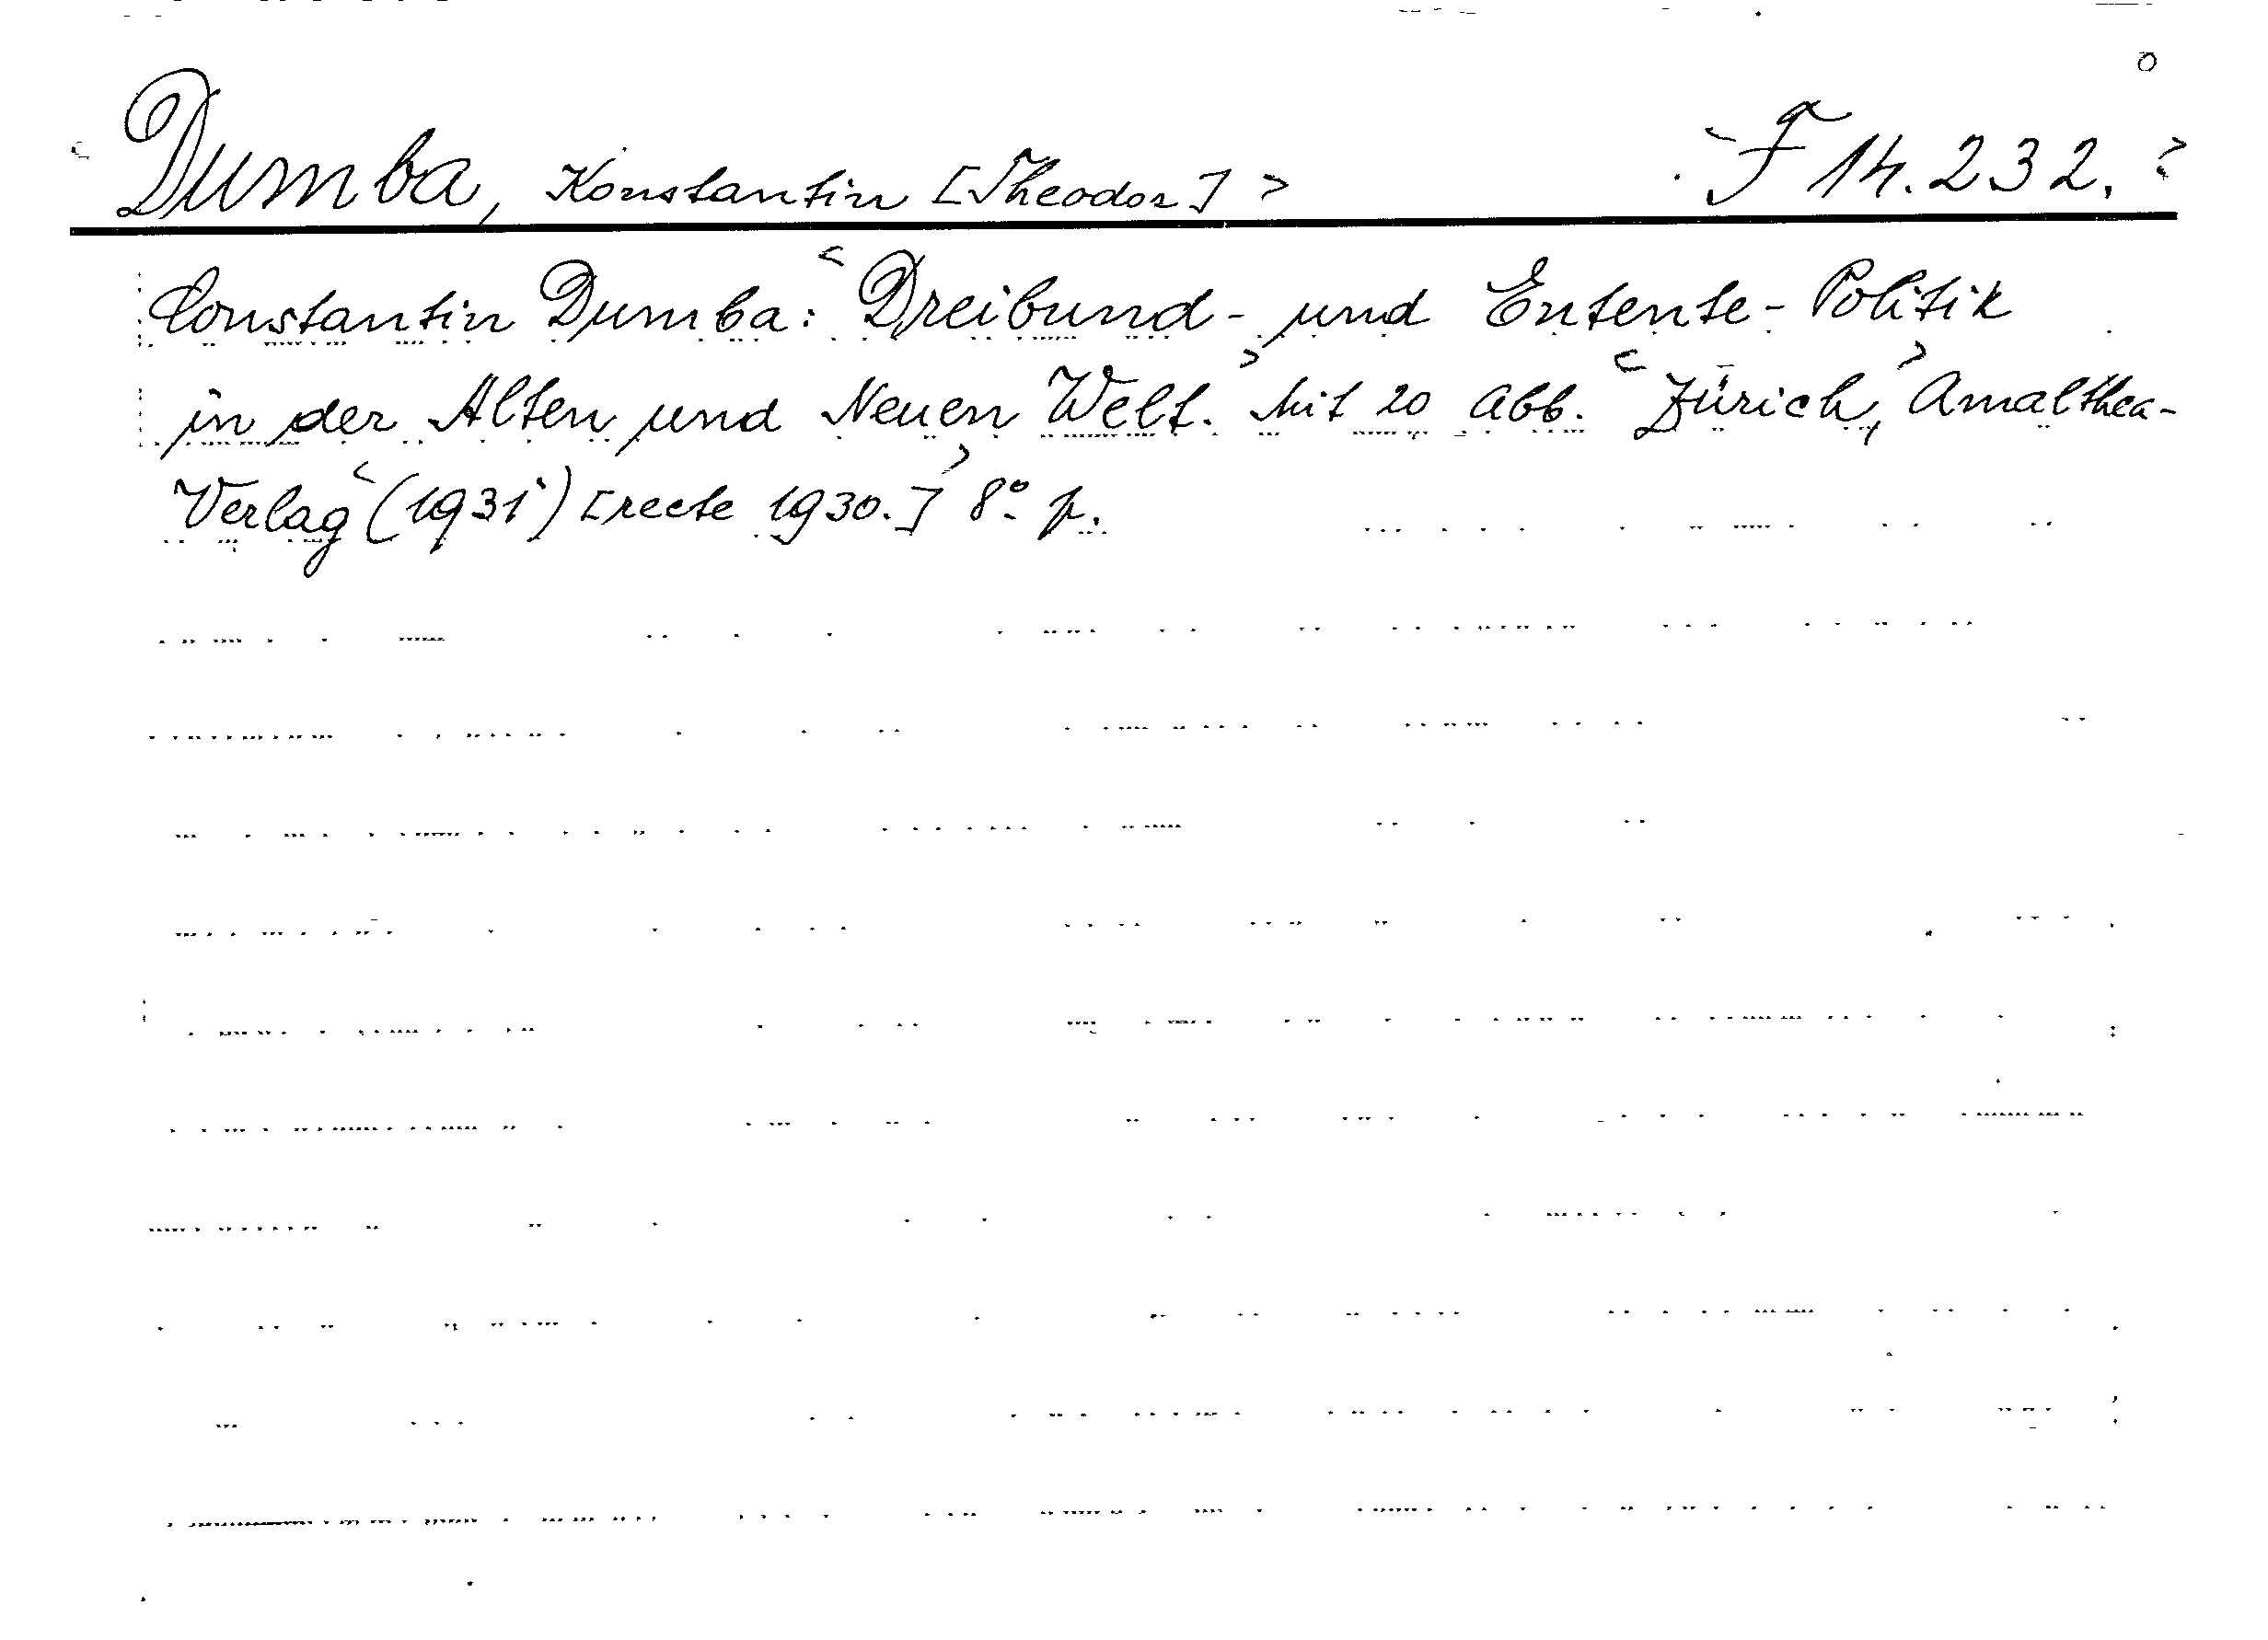 <Dumba, Konstantin [Theodor]> <F 14.232.>
Constantin Dumba: <Dreibund- und Entente-Politik
in der Alten und Neuen Welt.> Mit 20 Abb. <Zürich,> Amalthea-
Verlag <(1931) [recte 1930.]> 8° p.